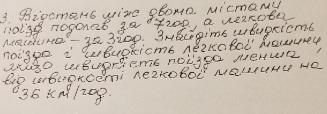 3. Відстань між двома містами
поїзд подолав за 7 год, а легкова
машина - за 3 год. Знайдіть швидкість
поїзда і швидкість легкової машини,
якщо швидкість поїзда менша
від швидкості легкової машини на
36 км/год.